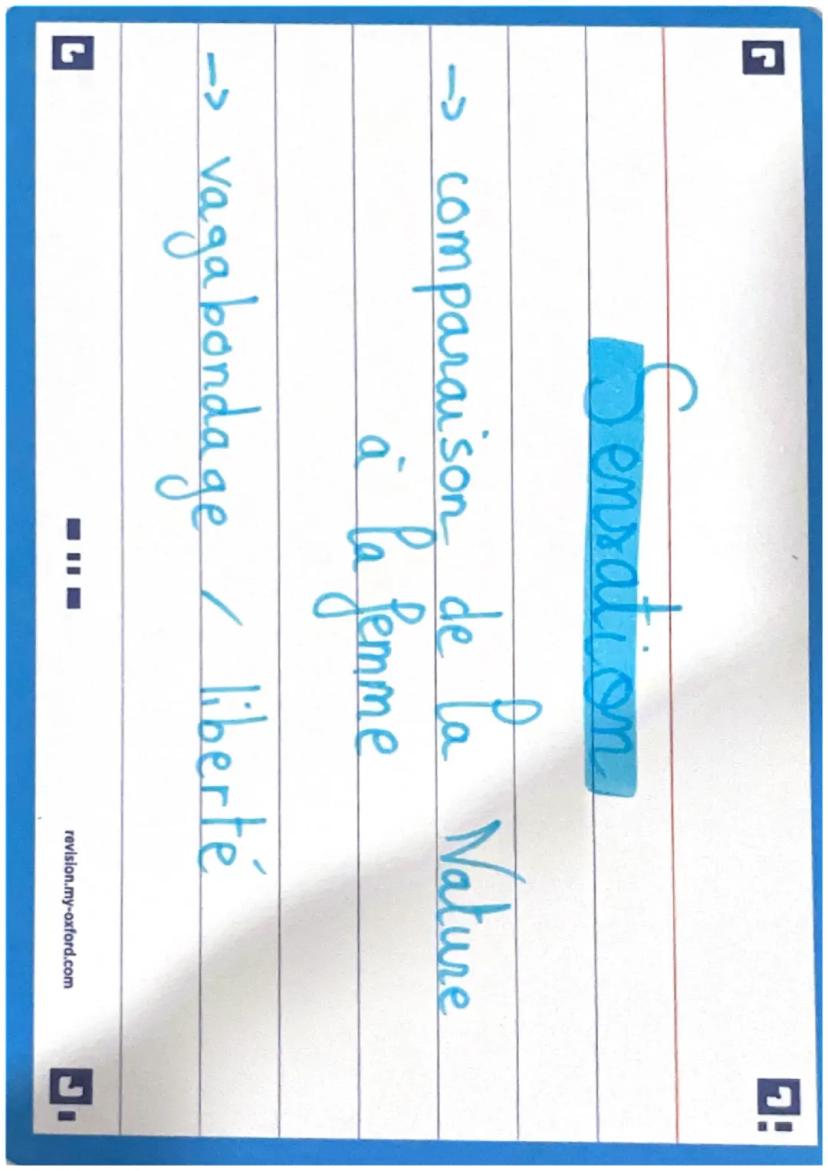 Sensation
-> comparaison de la Nature
à la femme
-> vagabondage / liberté
revision.my-oxford.com